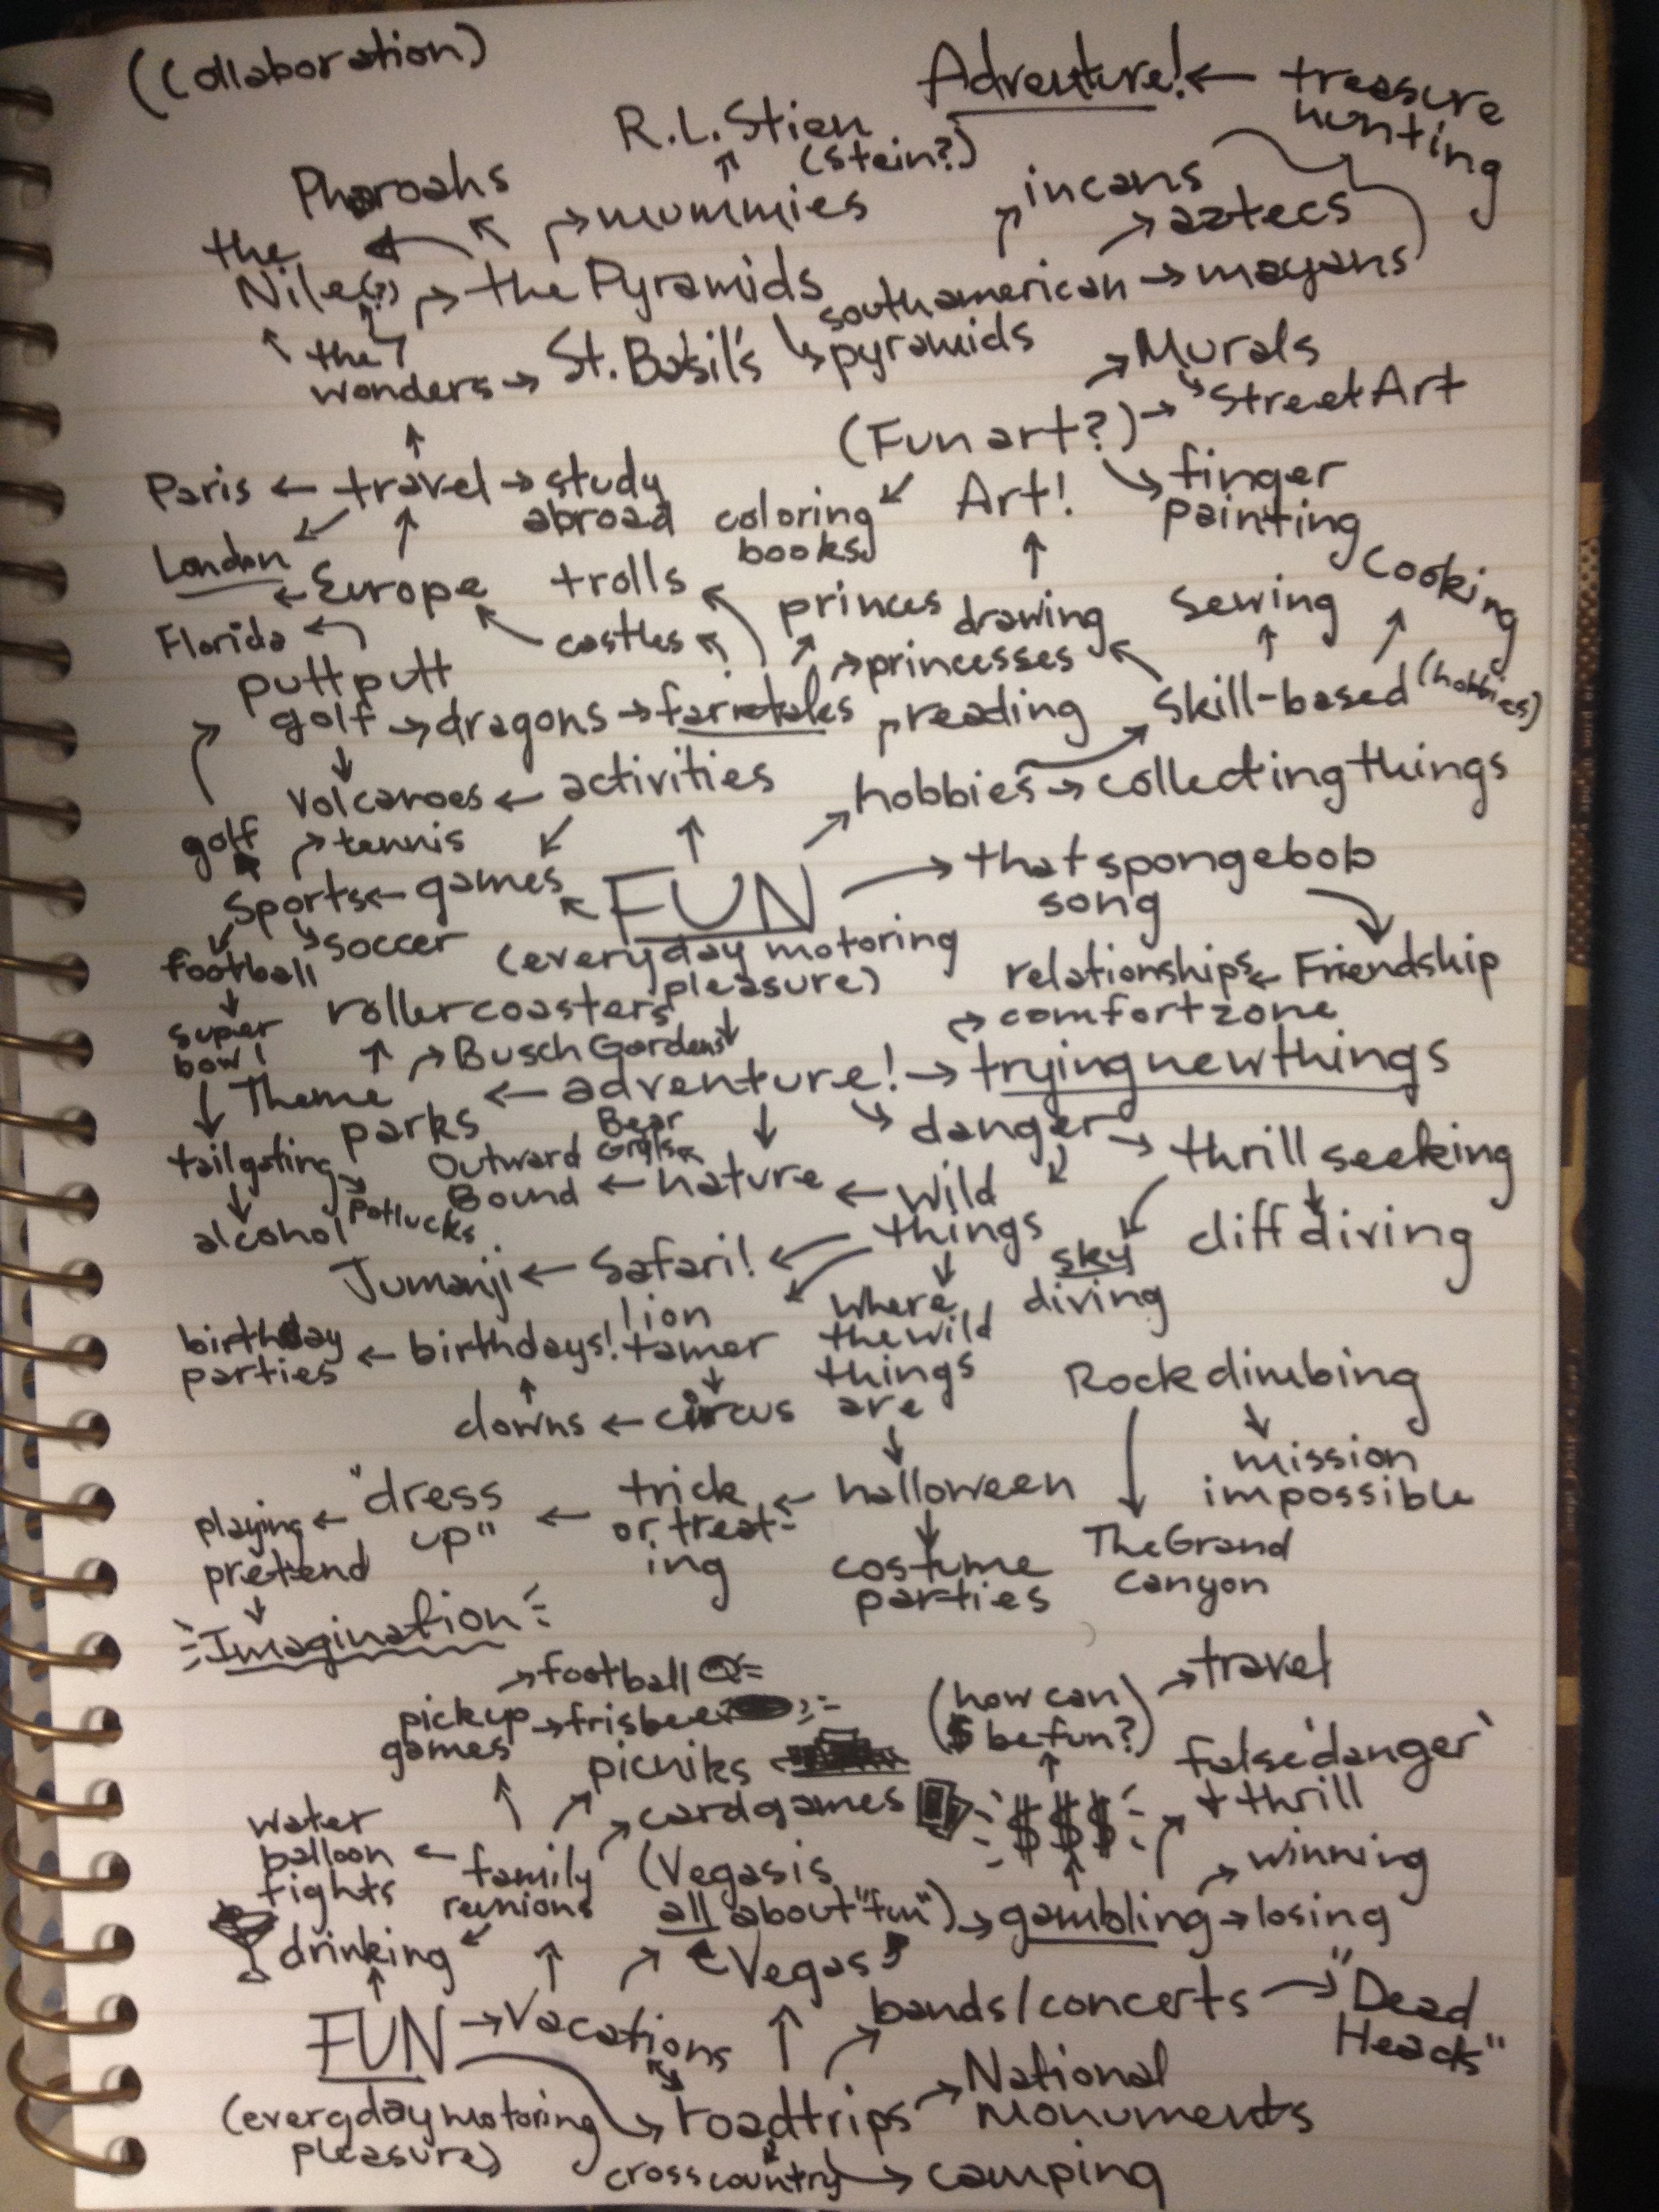 (Collaboration)
Adventure! ← treasure
hunting
R.L. Stien
(Stein?)
Pharoahs
mummies
incans
aztecs
the
Nile(?)
the Pyramids
southamerican → mayans
pyramids
the 7
wonders → St. Basil's
Murals
Street Art
(Fun art?)
finger
painting
Paris ← travel → study
abroad
coloring
books
Art!
London
Europe
trolls
princes
drawing
Sewing
Cooking
Florida
castles
princesses
puttputt
golf → dragons → fairietales
reading
Skill-based (hobbies)
Volcanoes ← activities
hobbies → collecting things
golf
tennis
Sports ← games
FUN
that spongebob
song
football
soccer
(everyday motoring
pleasure)
relationships ← Friendship
super
bowl
rollercoasters
comfort zone
Busch Gardens
Theme
parks
← adventure! → trying new things
danger → thrill seeking
tailgating
potlucks
alcohol
Outward
Bound
Bear
Grylls
← nature ← wild
things
sky
diving
cliff diving
Jumanji ← Safari!
lion
tamer
where
the wild
things
are
birthday
parties
← birthdays!
Rock climbing
clowns ← circus
mission
impossible
playing
pretend
← "dress
up"
← trick
or treat-
ing
← halloween
costume
parties
The Grand
Canyon
Imagination
football
pickup
games
→ frisbee
picniks
(how can
$ be fun?)
→ travel
false 'danger'
+ thrill
card games
$$$
water
balloon
fights
← family
reunions
(Vegas is
all about "fun") → gambling → losing
winning
drinking
Vegas
FUN → Vacations
bands/concerts → "Dead
Heads"
(everyday motoring
pleasure)
roadtrips → National
Monuments
cross country → camping